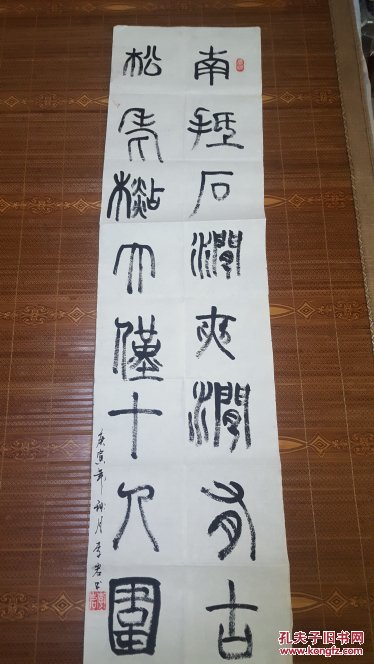 南抵石澗夾澗有古
松老檆大僅十人圍
庚寅年秋月李
孔夫子旧书网
www.kongfz.com